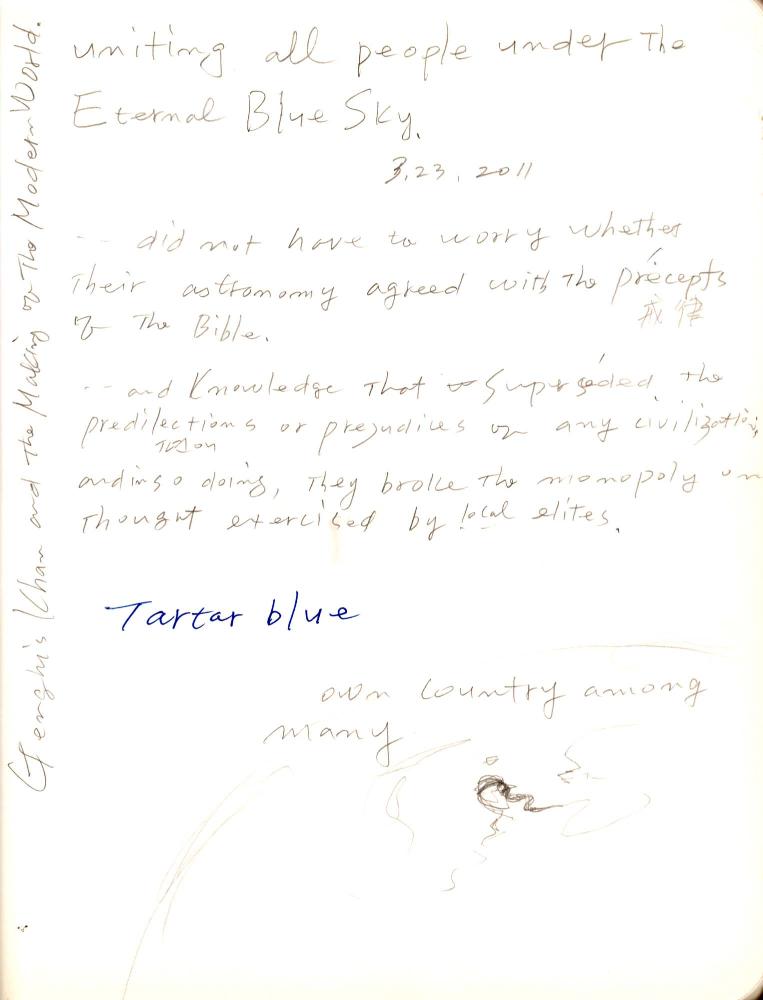 Genghis Khan and the Making of The Modern World.
uniting all people under The
Eternal Blue Sky.
3.23.2011
-- did not have to worry whether
Their astronomy agreed with The précepts
戒律
of The Bible.
-- and Knowledge That superséded the
predilections or prejudices of any civilization,
and in so doing, They broke The monopoly on
Thought exercised by local elites.
Tartar blue
own country among
many